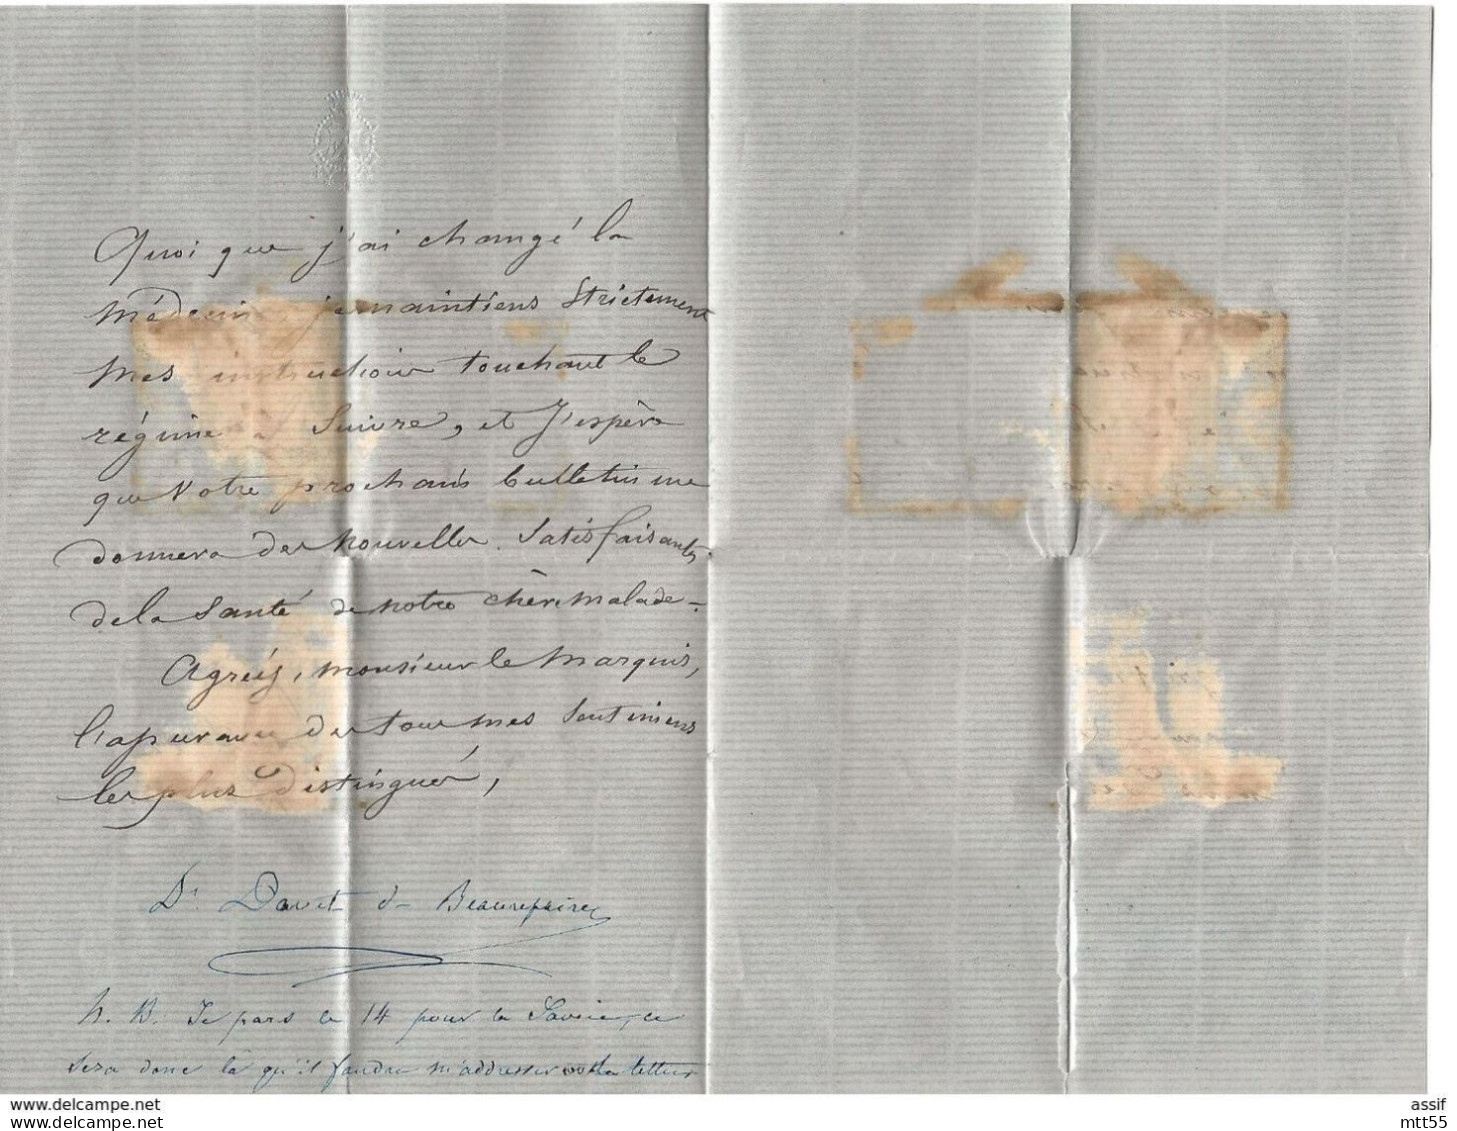 Quoi que j'ai changé la
médecin, je maintiens strictement
mes instruction touchant le
régime à suivre, et j'espère
que votre prochain bulletin me
donnera des nouvelles satisfaisantes
de la santé de notre chère malade -
Agréez, monsieur le marquis,
de tous mes sentimens
les plus distingués,
Dr. Davet de Beaurepaire
N. B. Je pars le 14 pour la Savoie, ce
sera donc là qu'il faudra m'addresser lettres
assif
mtt55